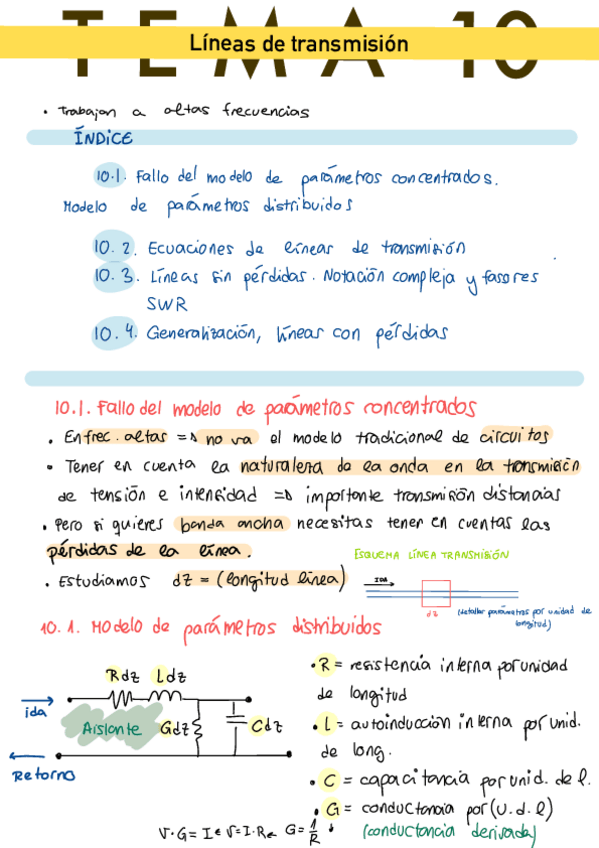 TEMA 10
Líneas de transmisión
• Trabajan a altas frecuencias
ÍNDICE
10.1. Fallo del modelo de parámetros concentrados.
Modelo de parámetros distribuidos
10.2. Ecuaciones de líneas de transmisión
10.3. Líneas sin pérdidas. Notación compleja y fasores
SWR
10.4. Generalización, líneas con pérdidas
10.1. Fallo del modelo de parámetros concentrados
• En frec. altas => no va el modelo tradicional de circuitos
• Tener en cuenta la naturaleza de la onda en la transmisión
de tensión e intensidad => importante transmisión distancias
• Pero si quieres banda ancha necesitas tener en cuentas las
pérdidas de la línea.
ESQUEMA LÍNEA TRANSMISIÓN
• Estudiamos dz = (longitud línea)
IDA
dz
(detallar parámetros por unidad de
longitud)
10.1. Modelo de parámetros distribuidos
Rdz Ldz
ida
Aislante
Gdz
Cdz
Retorno
• R = resistencia interna por unidad
de longitud
• L = autoinducción interna por unid.
de long.
• C = capacitancia por unid. de l.
• G = conductancia por (u.d.l)
(conductancia derivada)
V·G = I e V = I·Re G = 1/R